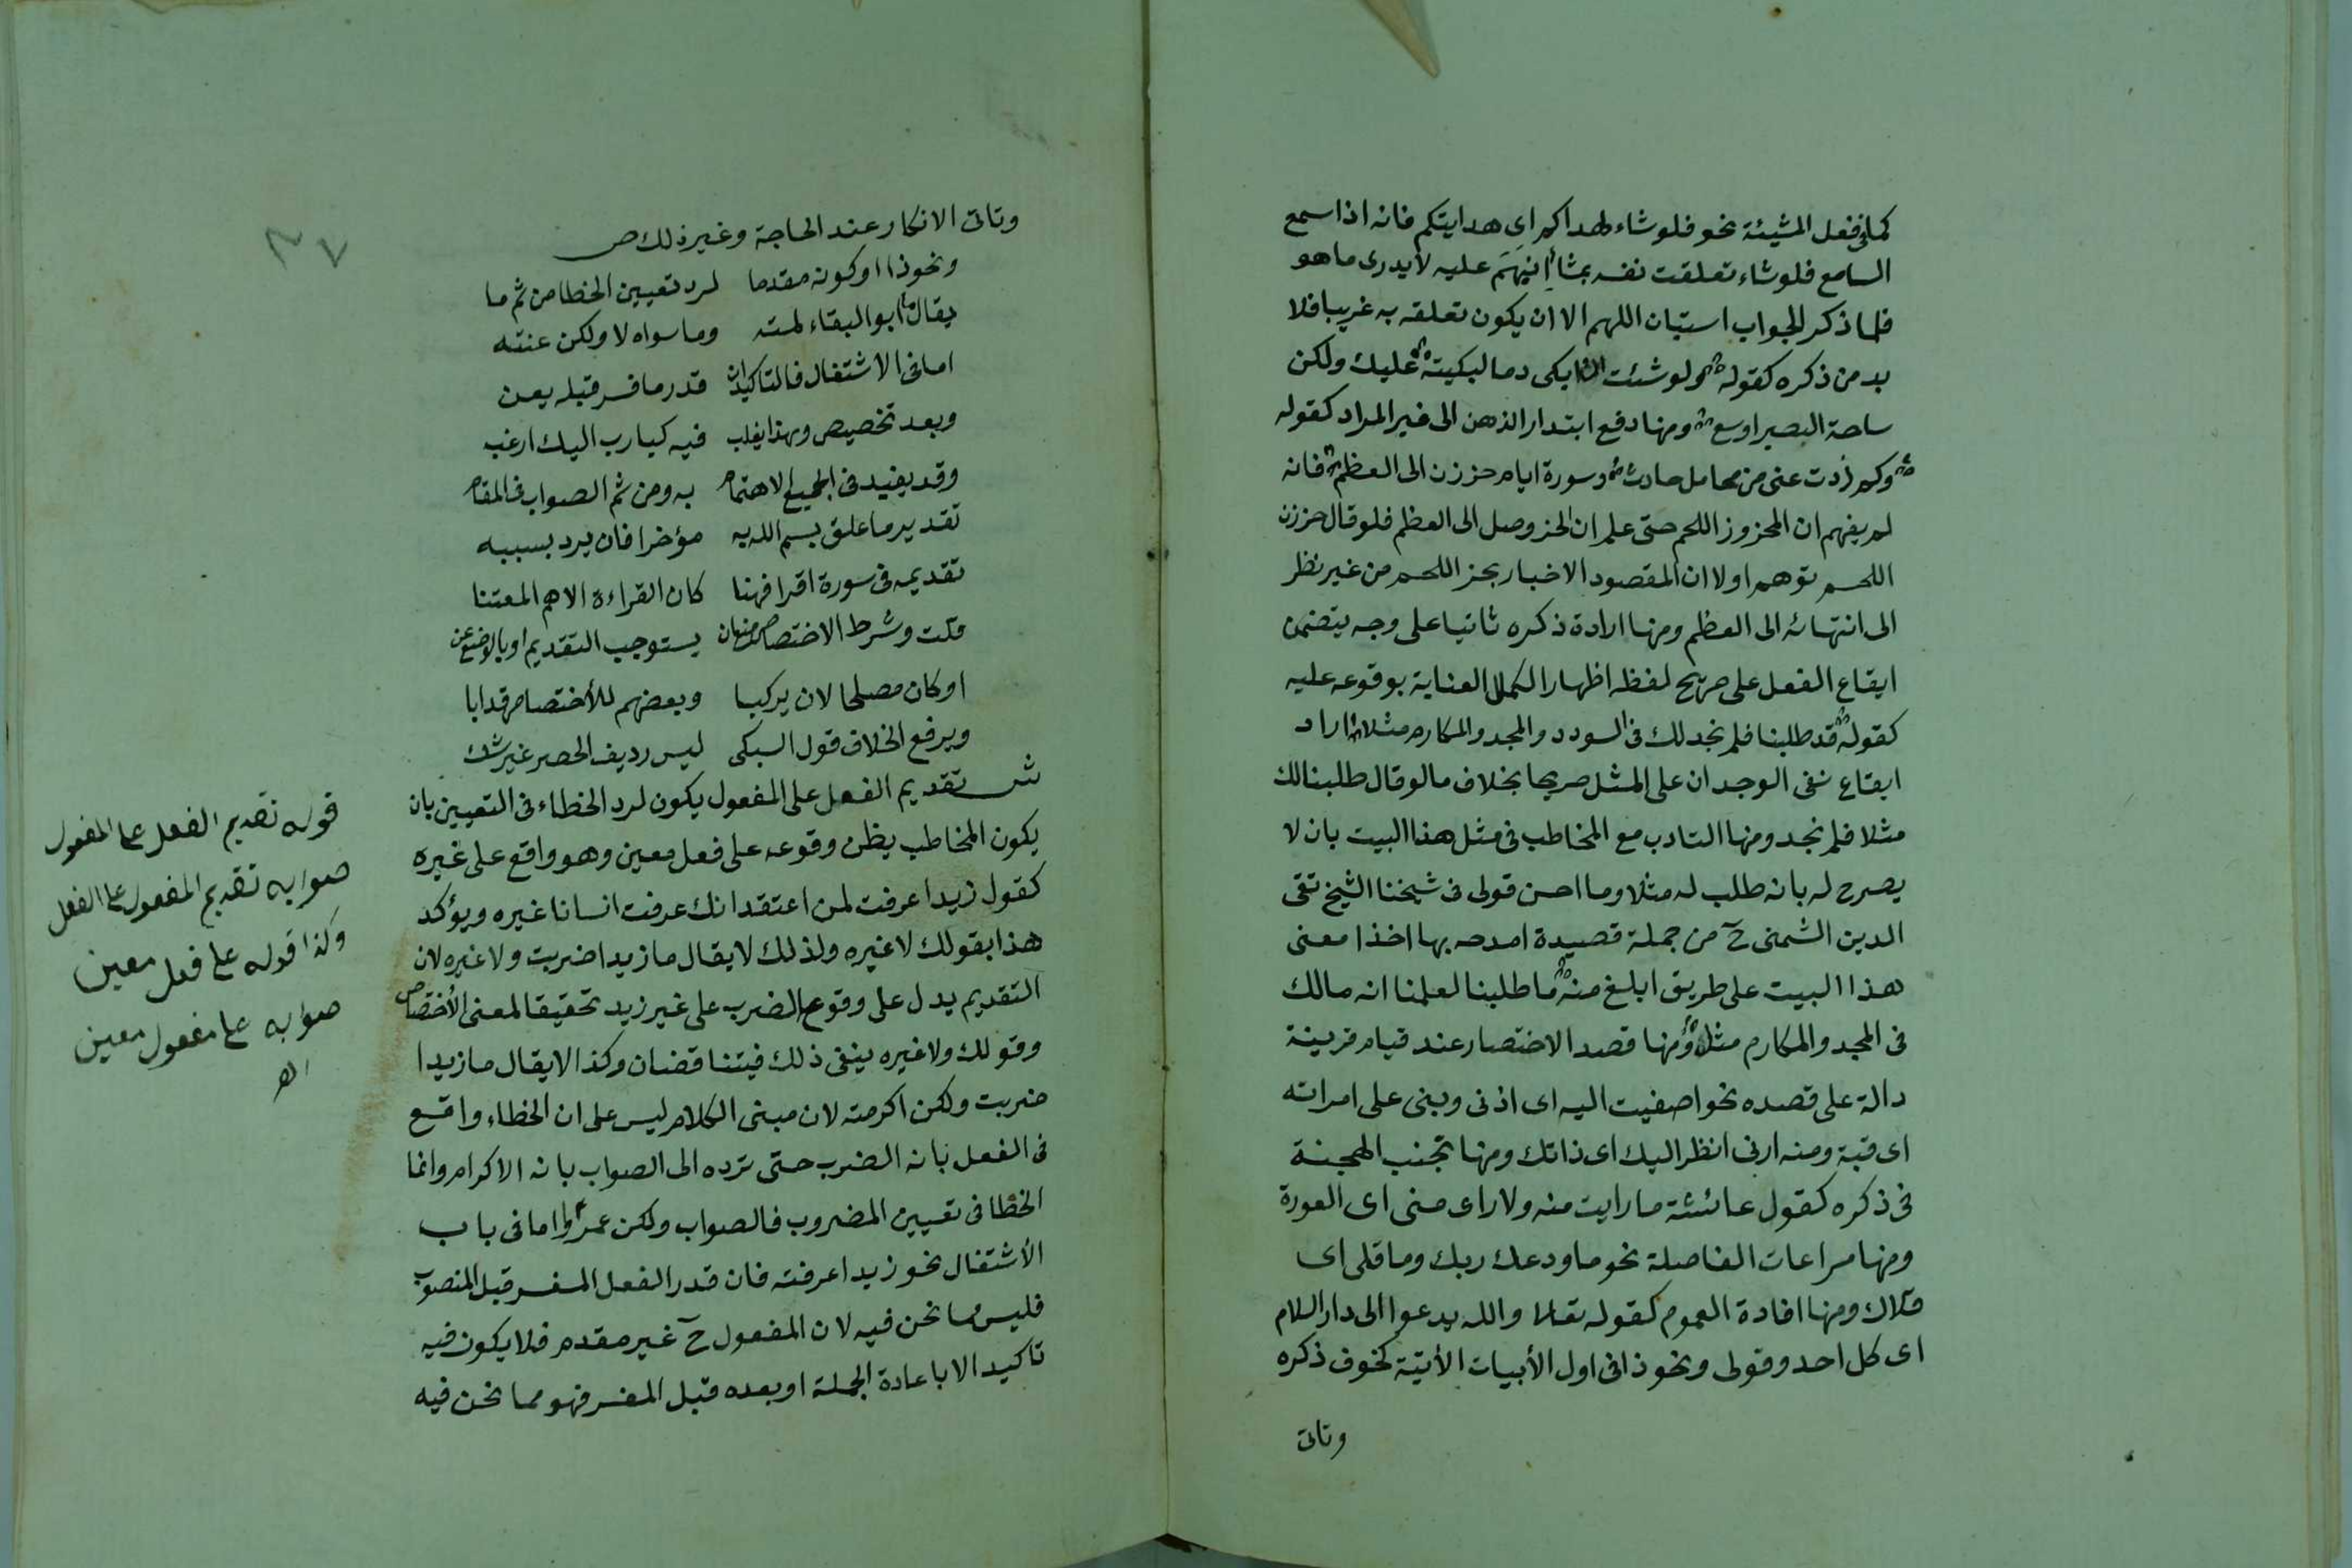 كما فى فعل المشيئة نحو فلو شاء لهداكم اى هدايتكم فانه اذا سمع
السامع فلو شاء تعلقت نفسه بمشاء انبهم عليه لا يدرى ما هو
فلما ذكر الجواب استبان اللهم الا ان يكون تعلقه به غريبا فلا
بد من ذكره كقوله ولو شئت ان ابكى دما لبكيته عليك ولكن
ساحة الصبر اوسع ومنها دفع ابتدار الذهن الى غير المراد كقوله
وكم ذدت عنى من تحامل حادث وسورة ايام حززن الى العظم فانه
لم يفهم ان المحزوز اللحم حتى علم ان الحز وصل الى العظم فلو قال حززن
اللحم توهم اولا ان المقصود الاخبار بحز اللحم من غير نظر
الى انتهائه الى العظم ومنها ارادة ذكره ثانيا على وجه يتضمن
ايقاع الفعل على صريح لفظه اظهارا لكمال العناية بوقوعه عليه
كقوله قد طلبنا فلم نجد لك فى السودد والمجد والمكارم مثلا اراد
ايقاع نفى الوجدان على المثل صريحا بخلاف ما لو قال طلبنا لك
مثلا فلم نجد ومنها التادب مع المخاطب فى مثل هذا البيت بان لا
يصرح له بانه طلب له مثلا وما احسن قولى فى شيخنا الشيخ تقى
الدين الشمنى ح من جملة قصيدة امدحه بها اخذا معنى
هذا البيت على طريق ابلغ منه ما طلبنا لعلمنا انه مالك
فى المجد والمكارم مثل ومنها قصد الاختصار عند قيام قرينة
دالة على قصده نحو اصغيت اليه اى اذنى وبنى على امراته
اى قبة ومنه ارنى انظر اليك اى ذاتك ومنها تجنب الهجنة
فى ذكره كقول عائشة ما رايت منه ولا راى منى اى العورة
ومنها مراعات الفاصلة نحو ما ودعك ربك وما قلى اى
قلاك ومنها افادة العموم كقوله تعالى والله يدعوا الى دار السلام
اى كل احد وقولى ونحو ذا فى اول الأبيات الأتية كخوف ذكره
وتاتى
٣٧
وتاتى الانكار عند الحاجة وغير ذلك ص
ونحوذا او كونه مقدما لرد تعيين الخطا من ثم ما
يقال ما ابو البقاء لمته وما سواه لا ولكن عنته
اما فى الاشتغال فالتاكيد ان قدر ما فسر قبله يعن
وبعد تخصيص وبهذا يغلب فيه كيا رب اليك ارغب
وقد يفيد فى الجميع الاهتمام به ومن ثم الصواب فى المقام
تقدير ما علق بسم الله به مؤخرا فان يرد بسببه
تقديمه فى سورة اقرا فهنا كان القراءة الاهم المعتنا
قلت وشرط الاختصاص منع ان يستوجب التقديم او بالوضع عن
او كان مصلحا لان يركبا وبعضهم للأختصاص قد ابا
ويرفع الخلاف قول السبكى ليس رديف الحصر غير شك
ش تقديم الفعل على المفعول يكون لرد الخطاء فى التعيين بان
يكون المخاطب يظن وقوعه على فعل معين وهو واقع على غيره
كقول زيدا عرفت لمن اعتقد انك عرفت انسانا غيره ويؤكد
هذا بقولك لا غيره ولذلك لا يقال ما زيدا ضربت ولا غيره لان
التقديم يدل على وقوع الضرب على غير زيد تحقيقا لمعنى الأختصاص
وقولك ولا غيره ينفى ذلك فيتناقضان وكذا لا يقال ما زيدا
ضربت ولكن اكرمته لان مبنى الكلام ليس على ان الخطاء واقع
فى الفعل بانه الضرب حتى ترده الى الصواب بانه الاكرام وانما
الخطا فى تعيين المضروب فالصواب ولكن عمرا واما فى باب
الأشتغال نحو زيدا عرفته فان قدر الفعل المفسر قبل المنصوب
فليس مما نحن فيه لان المفعول ح غير مقدم فلا يكون فيه
تاكيد الا باعادة الجملة او بعده قبل المفسر فهو مما نحن فيه
قوله تقديم الفعل على المفعول
صوابه تقديم المفعول على الفعل
وكذا قوله على فعل معين
صوابه على مفعول معين
اهـ